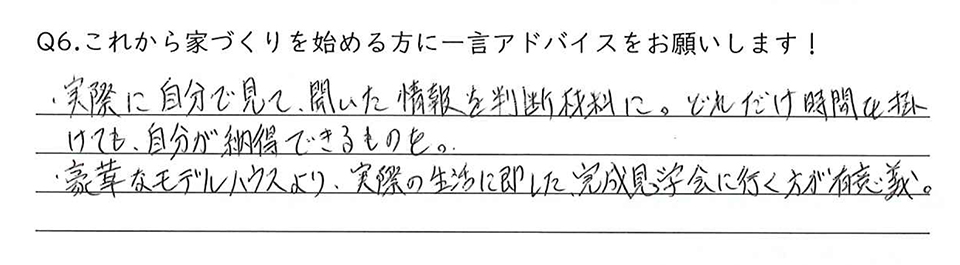 Q6.これから家づくりを始める方に一言アドバイスをお願いします！
・実際に自分で見て、聞いた情報を判断材料に。どれだけ時間を掛
けても、自分が納得できるものを。
・豪華なモデルハウスより、実際の生活に即した、完成見学会に行く方が有意義。